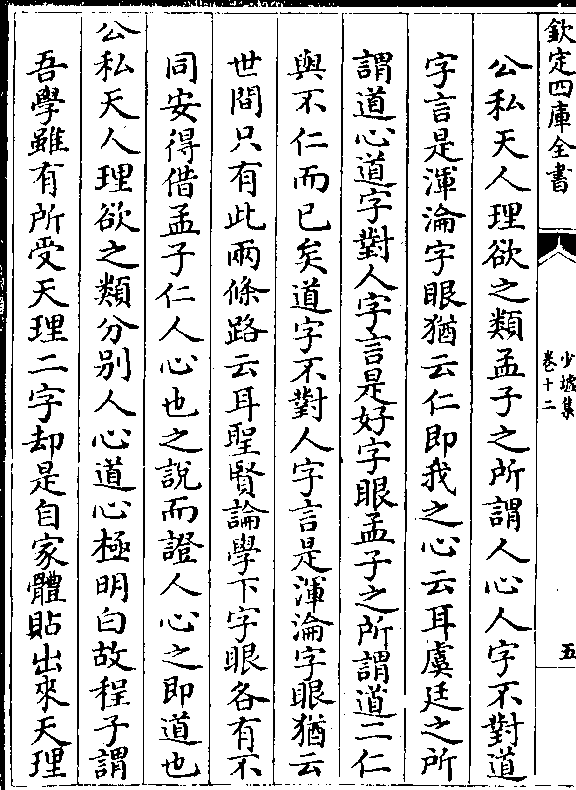 欽定四庫全書
少墟集
卷十二
五
公私天人理欲之類孟子之所謂人心人字不對道
字言是渾淪字眼猶云仁即我之心云耳虞廷之所
謂道心道字對人字言是好字眼孟子之所謂道二仁
與不仁而已矣道字不對人字言是渾淪字眼猶云
世間只有此兩條路云耳聖賢論學下字眼各有不
同安得借孟子仁人心也之說而證人心之即道也
公私天人理欲之類分别人心道心極明白故程子謂
吾學雖有所受天理二字却是自家體貼出來天理